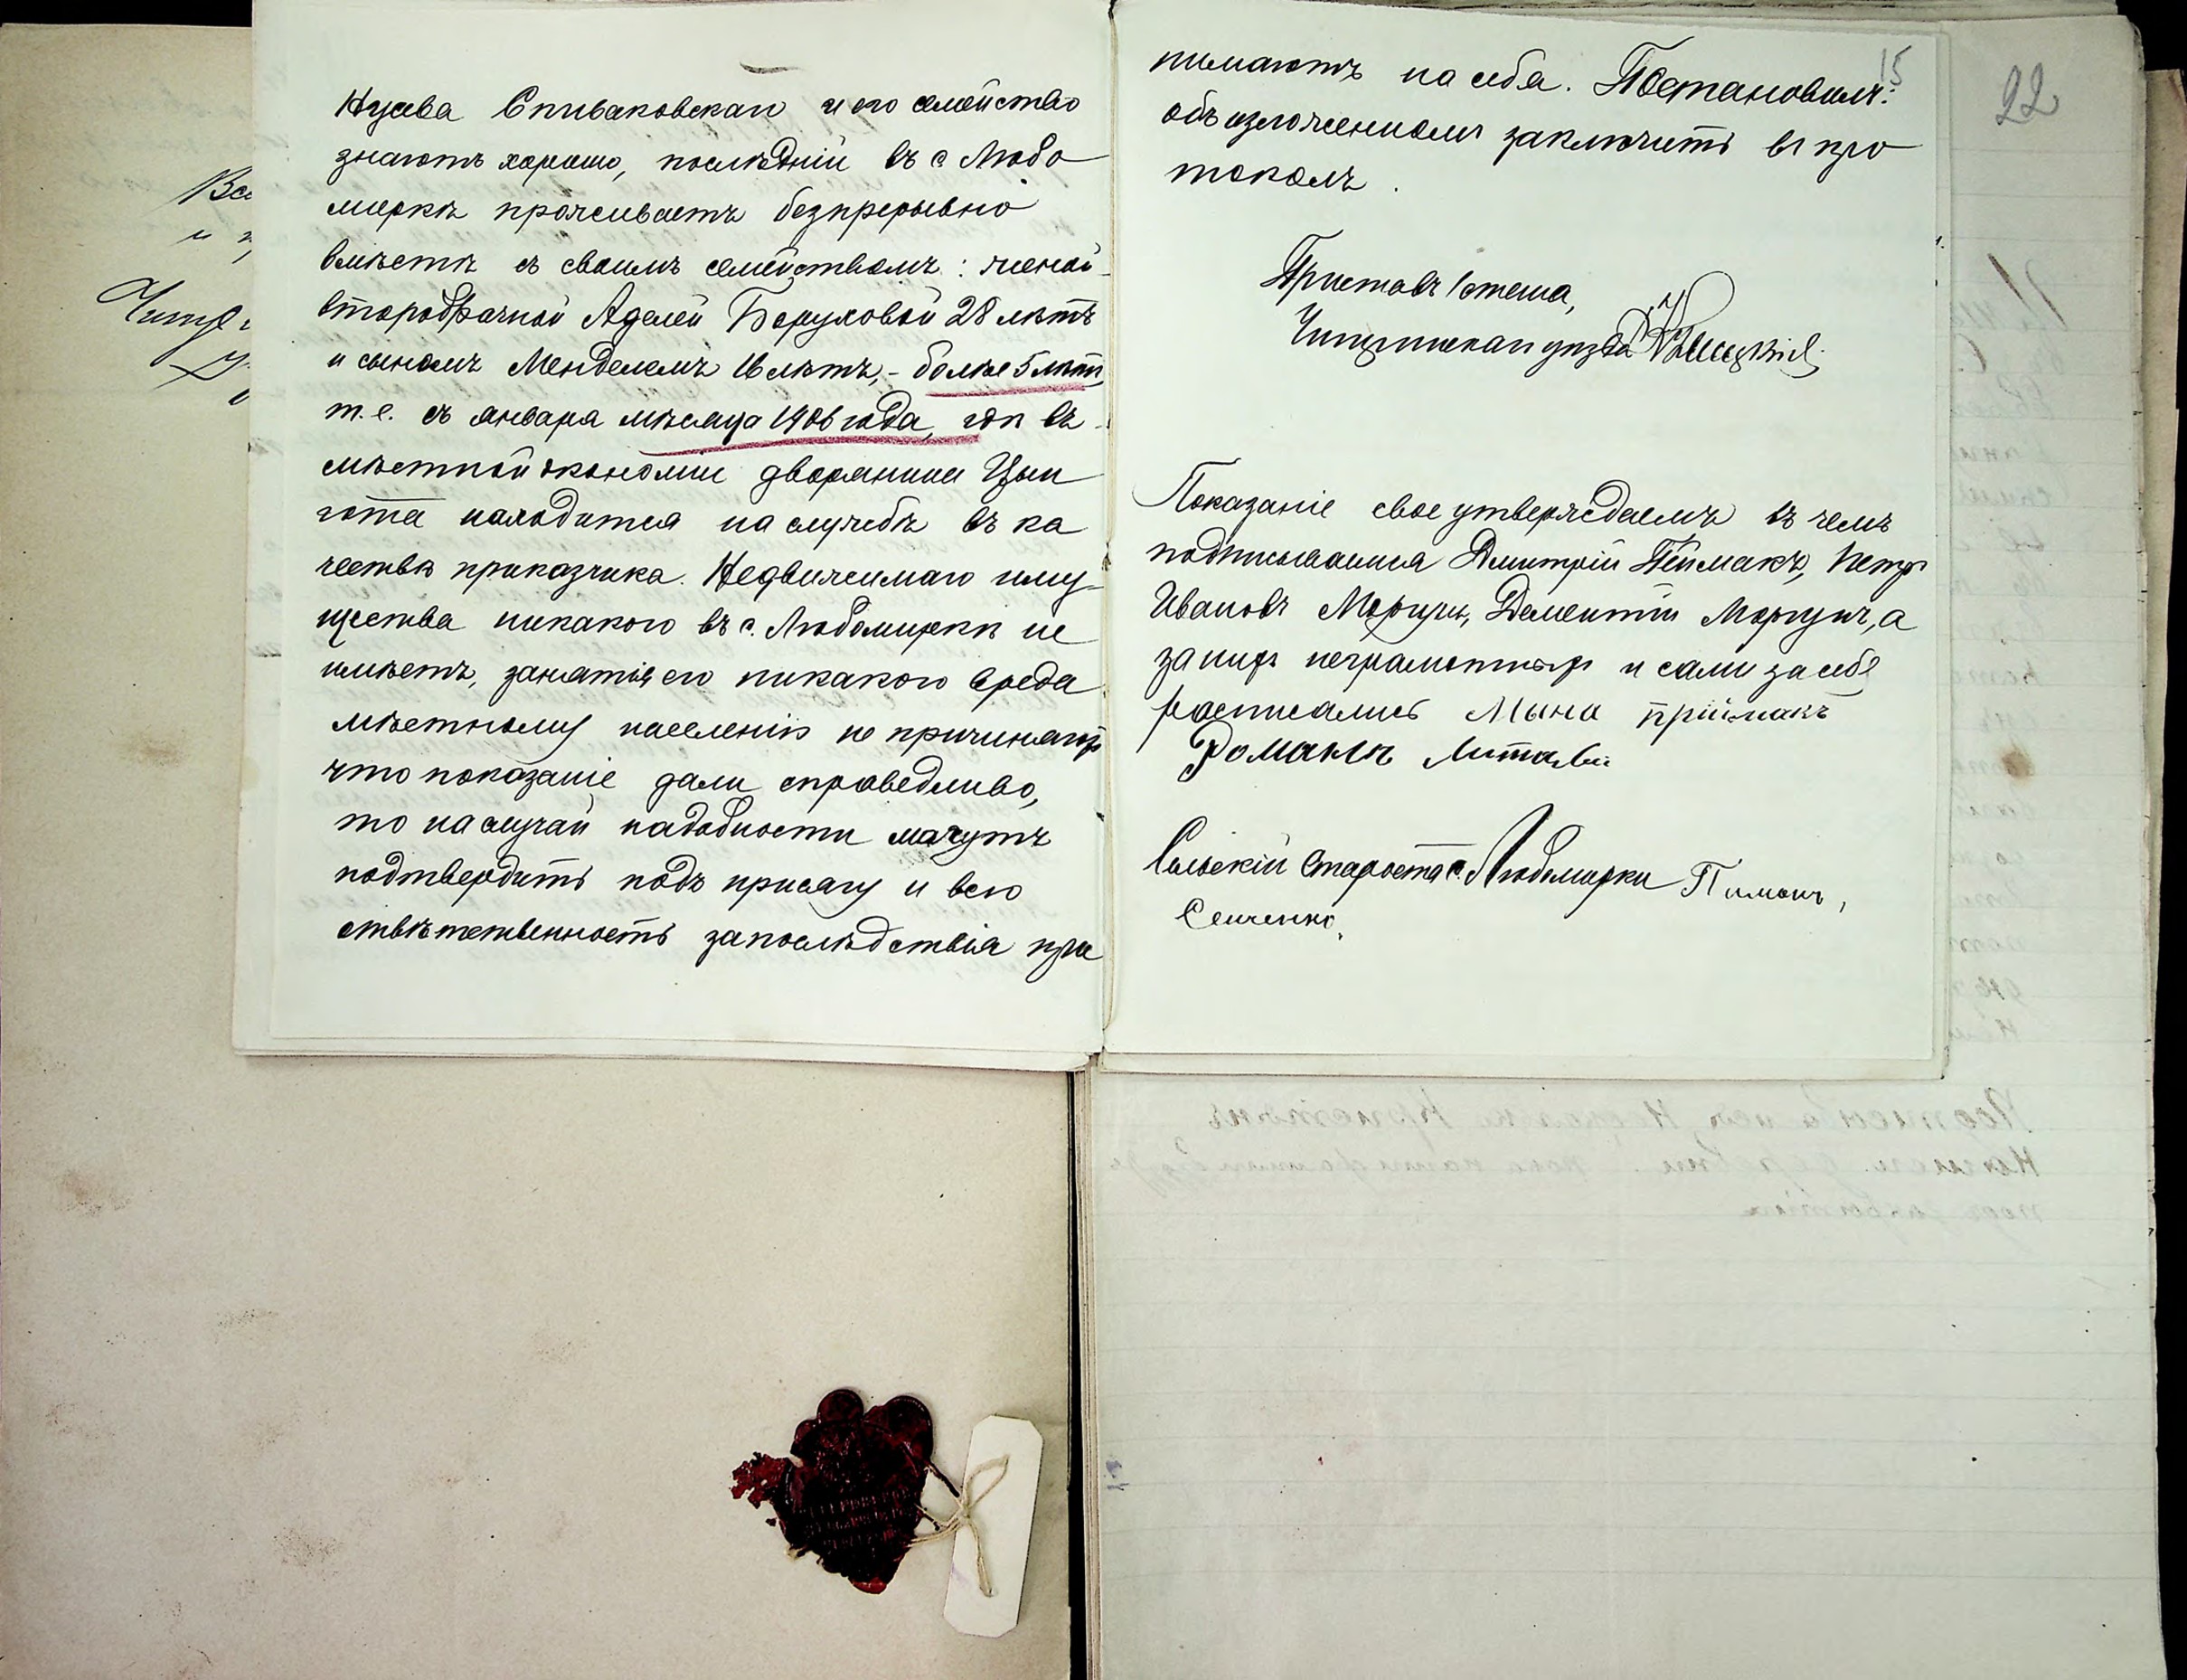 Нусева Спиваковскаго и его семейство
знаютъ хорошо, послѣдній въ с. Любо
миркѣ проживаетъ безпрерывно
вмѣстѣ съ своимъ семействомъ: женой
второбрачной Аделей Боруховой 28 лѣтъ
и сыномъ Менделемъ 16 лѣтъ, - болѣе 5 лѣтъ
т.е. съ января мѣсяца 1906 года, гдѣ въ
мѣстной экономіи дворянина
находится на службѣ въ ка
чествѣ приказчика. Недвижимаго иму
щества никакого въ с. Любомиркѣ не
имѣетъ, занятія его никакого вреда
мѣстному населенію не причиняютъ
что показаніе дали справедливо,
то на случай надобности могутъ
подтвердить подъ присягу и всю
отвѣтственность за послѣдствія при
нимаютъ на себя. Постановилъ:
объ изложенномъ заключить въ про
токолъ.
Приставъ 1 стана,
уѣзда
Показаніе свое утверждаемъ въ чемъ
подписываемся Дмитрій Пріймакъ, Петръ
Ивановъ Моргунъ, Дементій Моргунъ, а
за нихъ неграмотныхъ и сами за себя
росписались Мына прiймакъ
Романъ
Сельскій Староста с. Любомирки Пименъ,
Сенченко.
15
22